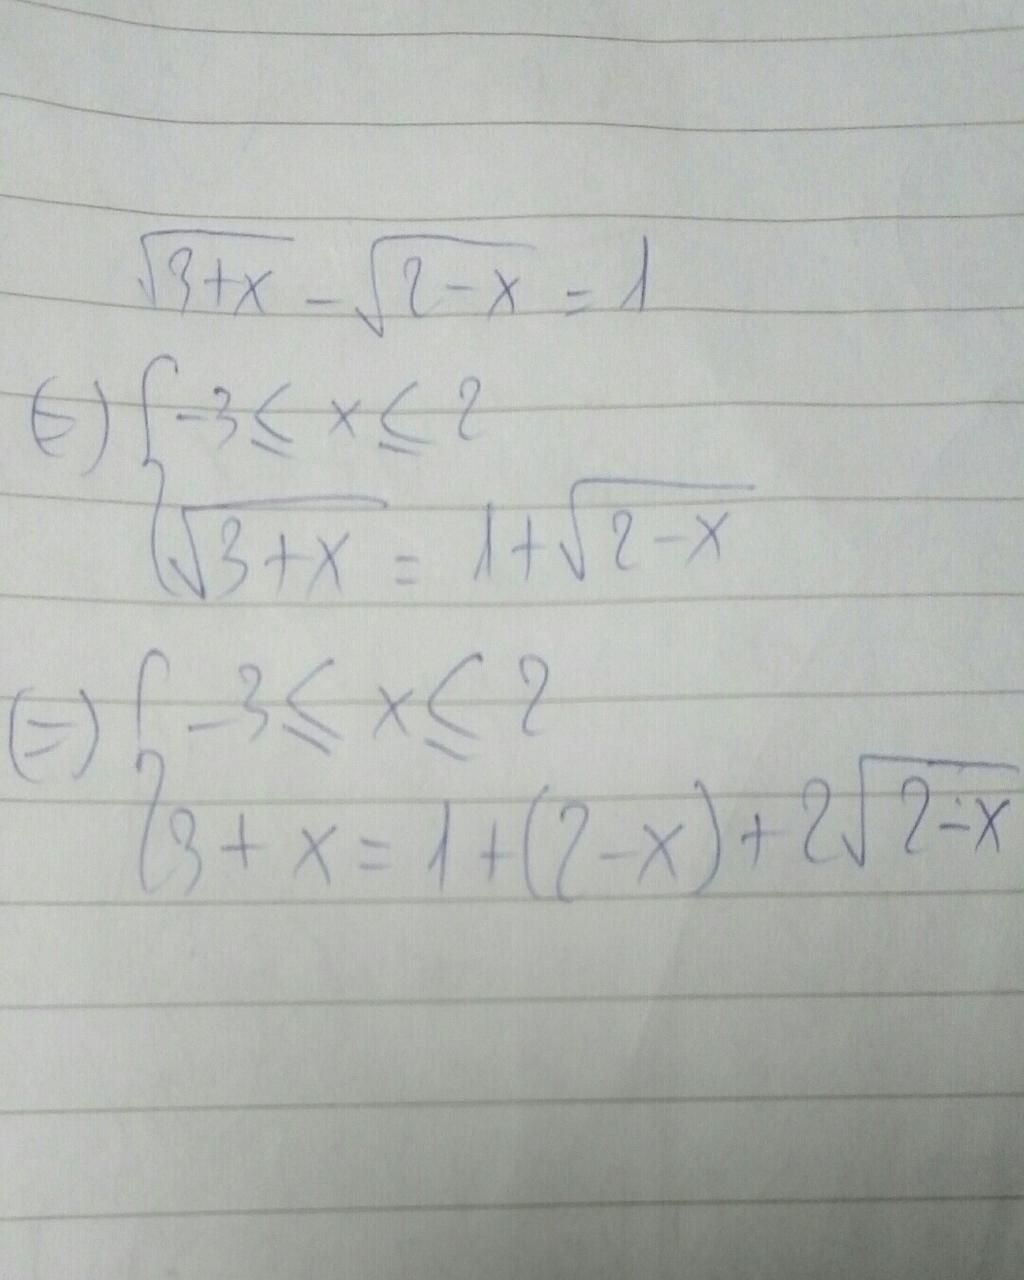 √(3+x) - √(2-x) = 1
(=) { -3 ≤ x ≤ 2
√(3+x) = 1+√(2-x)
(=) { -3 ≤ x ≤ 2
3+x = 1+(2-x)+2√(2-x)